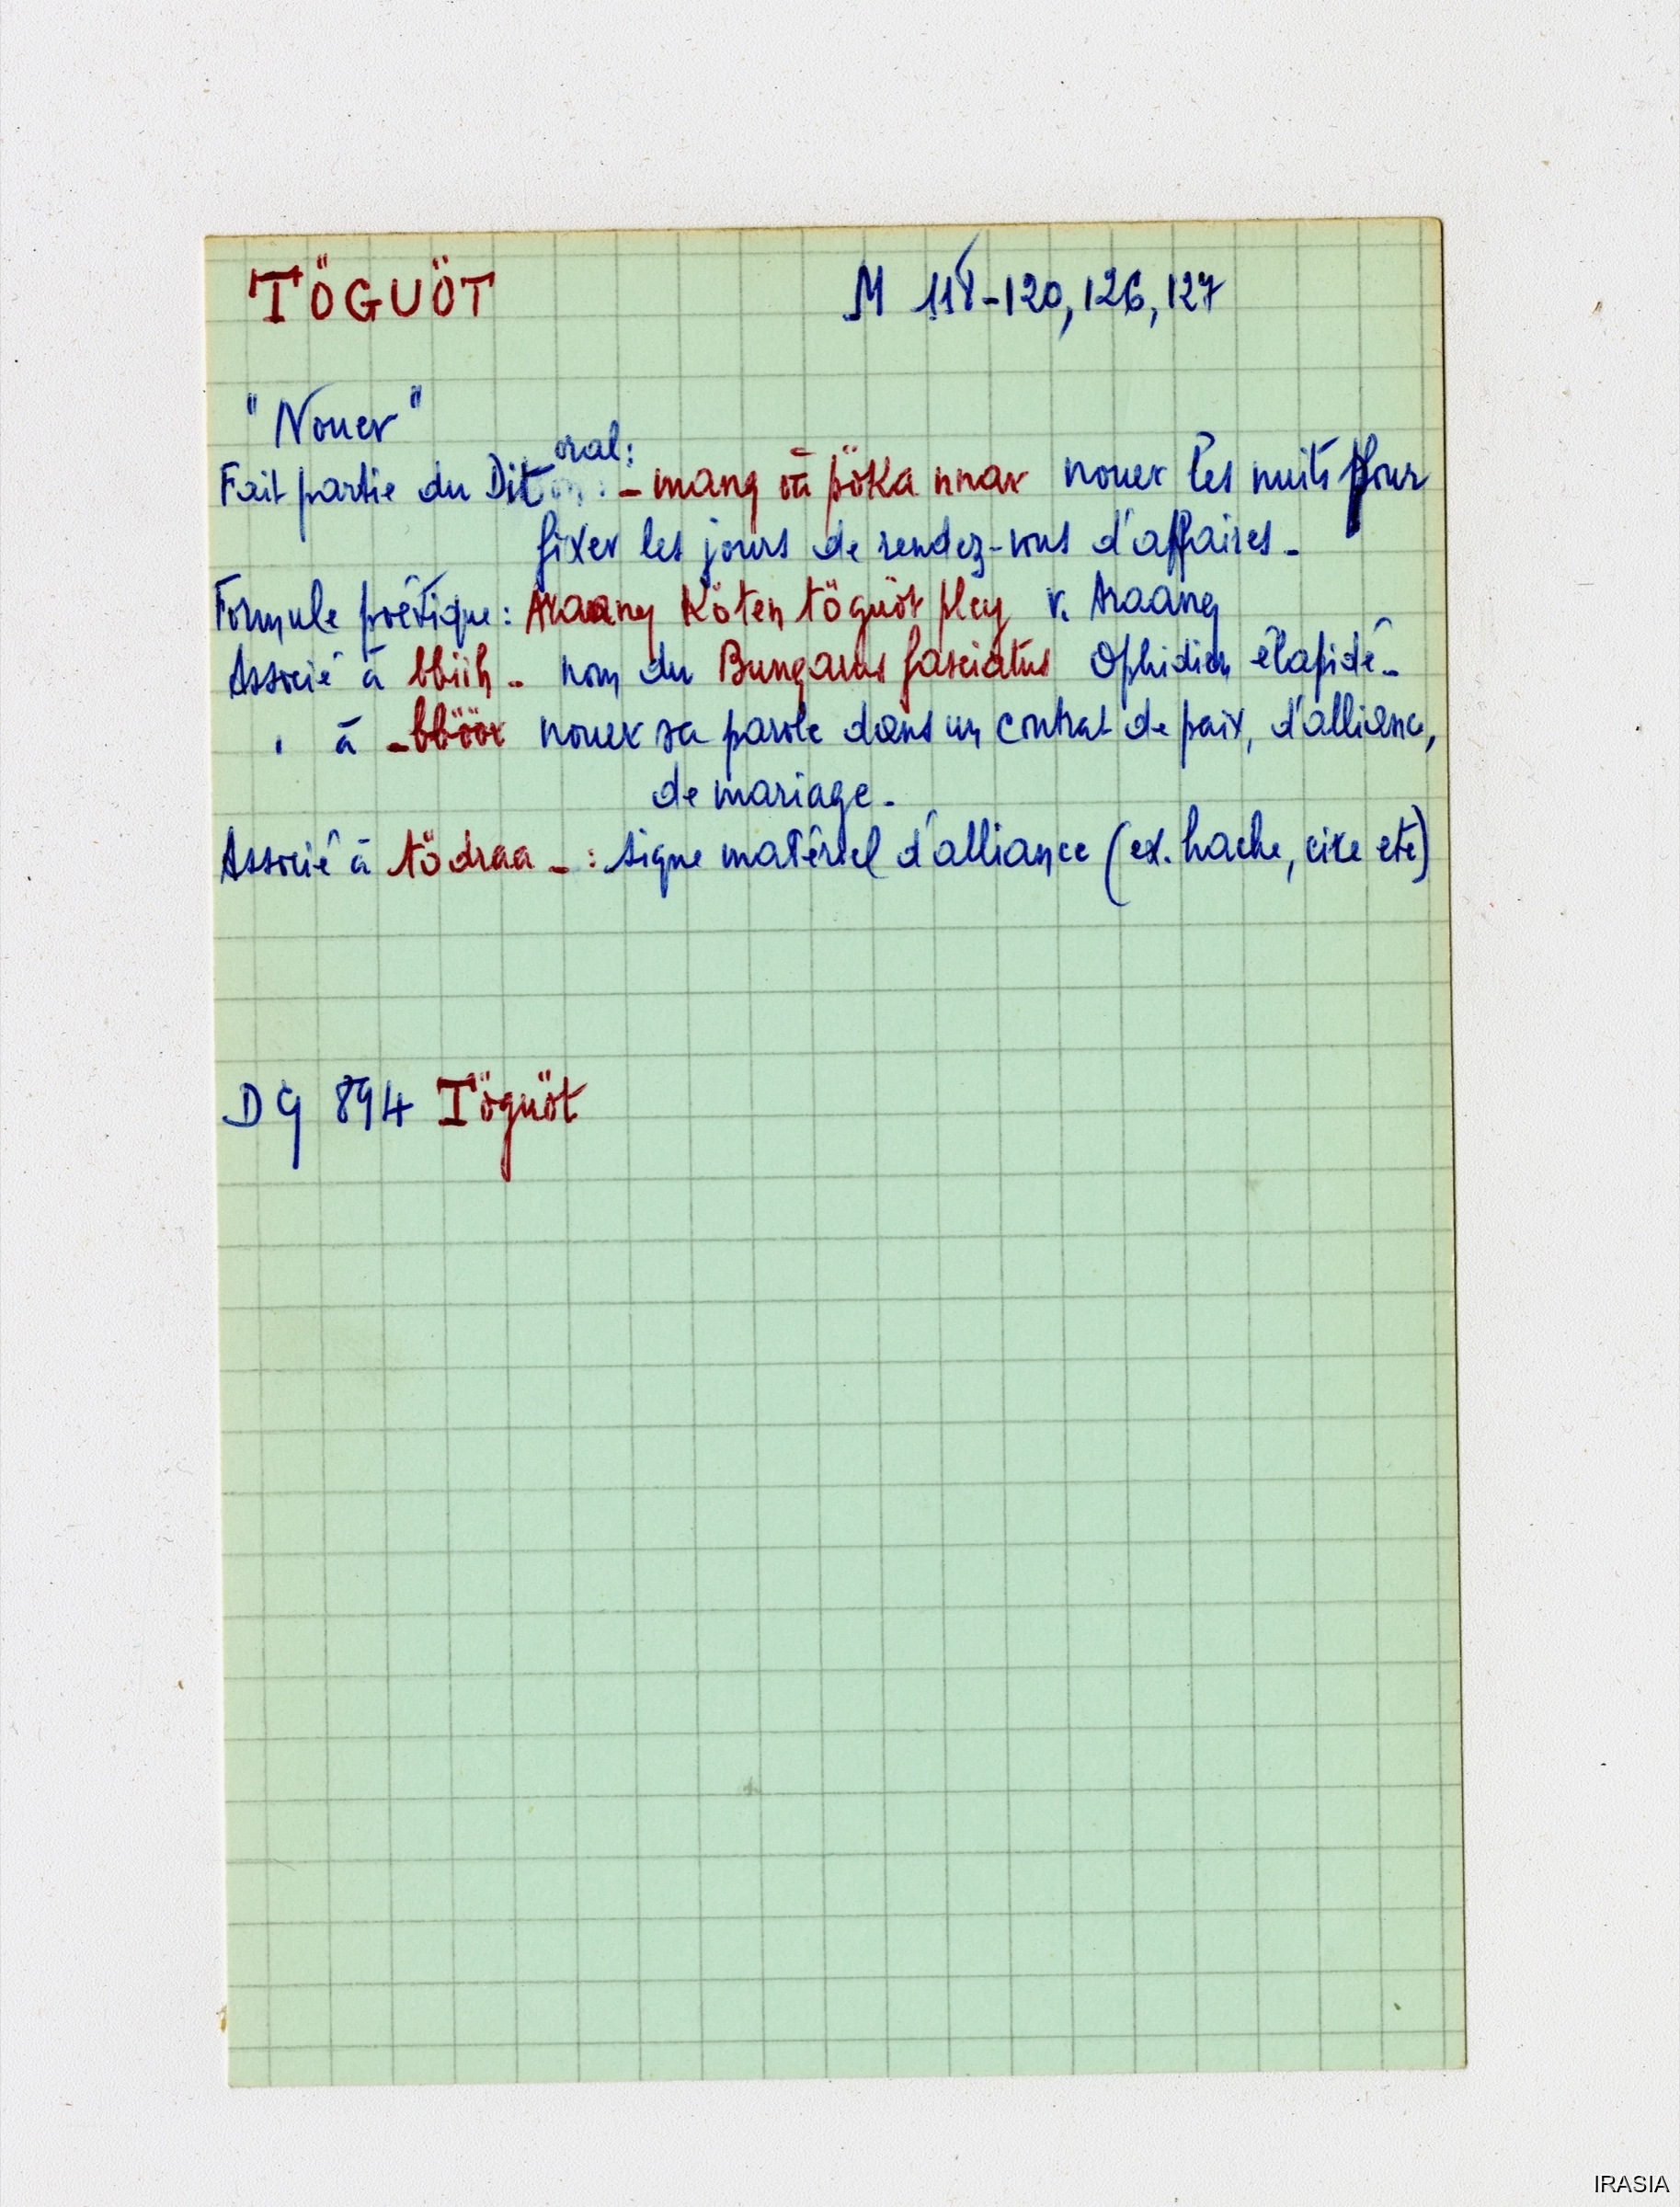 TÖGUÖT M 118-120, 126, 127
"Nouer"
Fait partie du Dit oral: - mang pöka nnar nouer les nuits pour
fixer les jours de rendez-vous d'affaires -
Formule poétique: Araang Köten töguöt pley v. Araang
Associé à bbiih - nom du Bungarus fasciatus Ophidien élapidé -
" à - bböör nouer sa parole dans un contrat de paix, d'alliance,
de mariage -
Associé à tödraa - : signe matériel d'alliance (ex. hache, cire etc)
DG 894 Töguöt
IRASIA